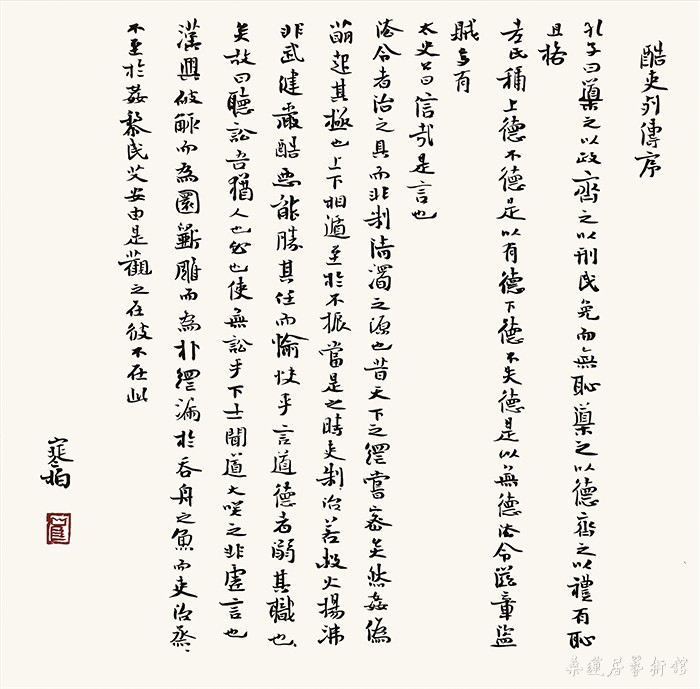 酷吏列傳序
孔子曰導之以政齊之以刑民免而無恥導之以德齊之以禮有恥
且格
老氏稱上德不德是以有德下德不失德是以無德法令滋章盜
賊多有
太史公曰信哉是言也
法令者治之具而非制清濁之源也昔天下之網嘗密矣然姦偽
萌起其極也上下相遁至於不振當是之時吏制治若救火揚沸
非武健嚴酷惡能勝其任而愉快乎言道德者溺其職也
矣故曰聽訟吾猶人也必也使無訟乎下士聞道大笑之非虛言也
漢興破觚而為圜斲雕而為朴網漏於吞舟之魚而吏治烝、
不至於姦黎民艾安由是觀之在彼不在此
寒柏
蓮居藝術館